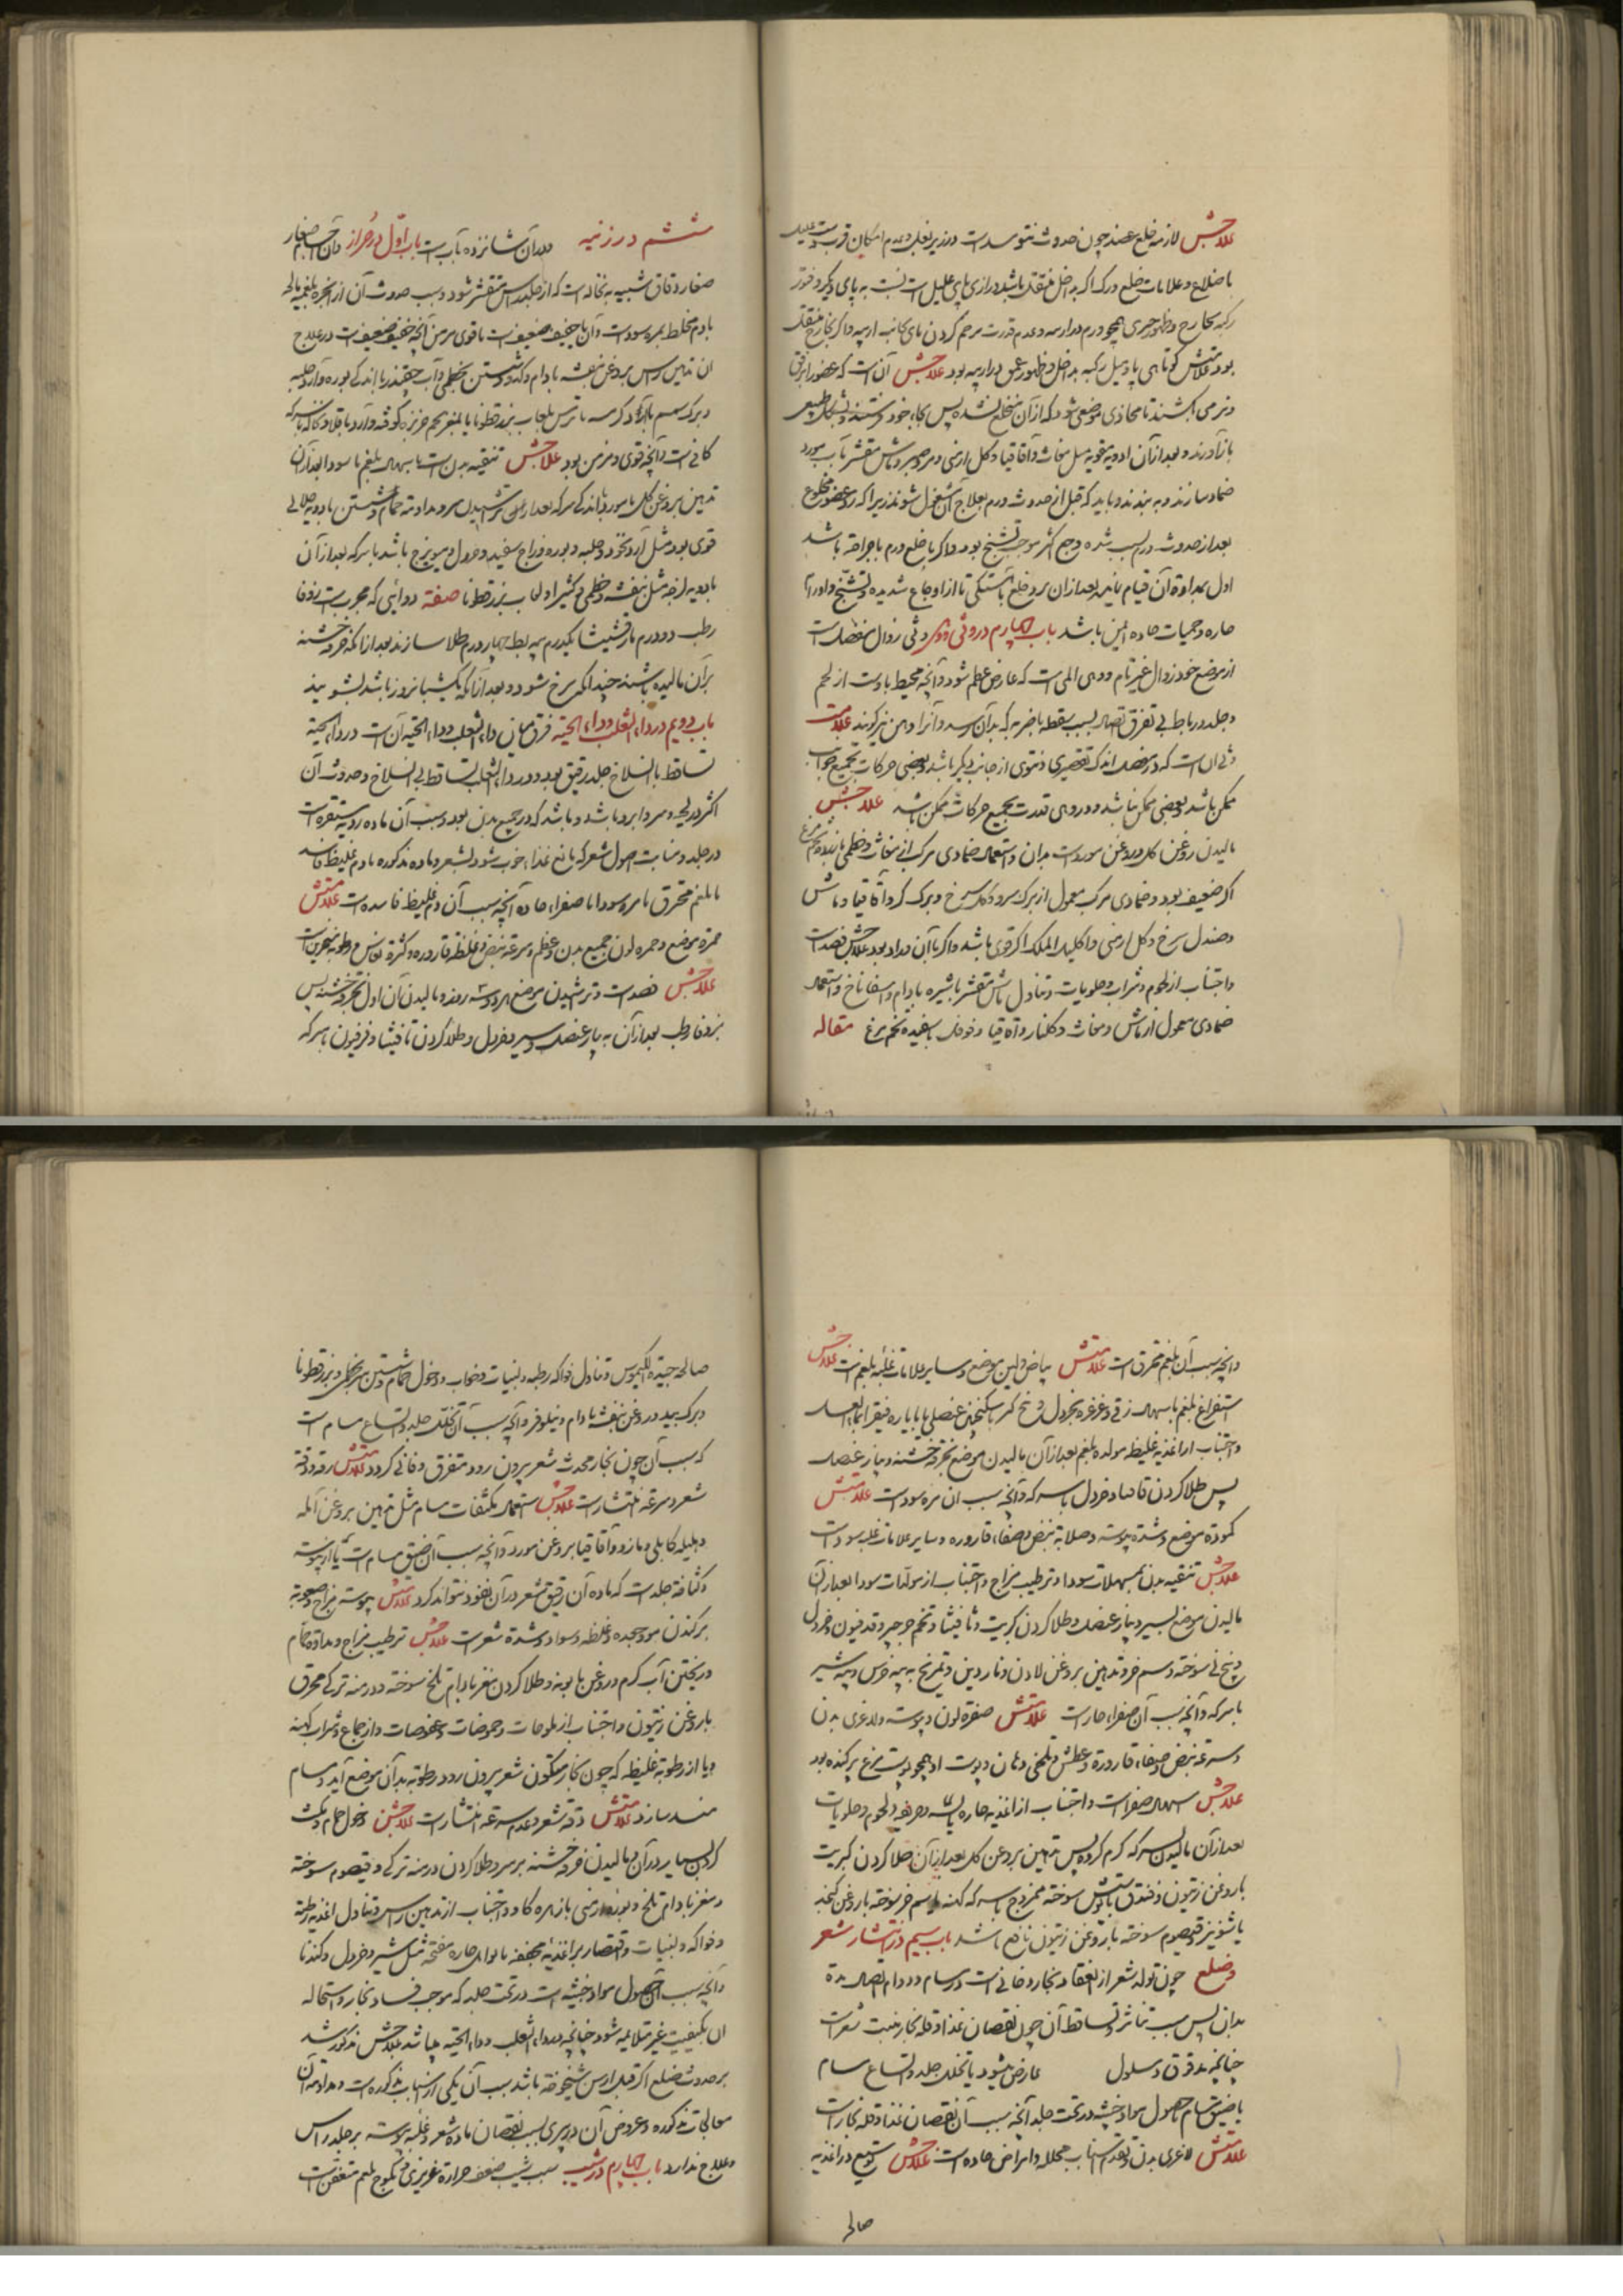 علاجش لازمه خلع عضد چون حدوث نتو سدت در زیر بغل و عدم امکان قرب
با ضلاع و علامات خلع ورک اگر به داخل منتقل باشد درازی پای علیل است نسبت به پای دیگر و فتور
رکبه بخارج و ظهور چیزی همچو ورم در اربیه و عدم قدرت بر خم کردن پای بجانب اربیه و اگر بخارج منتقل
بود علامتش کوتاهی پا و میل رکبه بداخل و ظهور عمق در اربیه بود علاجش آن است که عضو را برفق
و نرمی بکشند تا محاذی موضعی شود که از آن منخلع شده پس بجای خود و بشکل طبیعی
باز آورند و بعد از آن ادویه مقویه مثل مغاث و اقاقیا و گل ارمنی و مر و صبر و ماش مقشر بآب مورد
ضماد سازند و به بندند و باید که قبل از حدوث ورم بعلاج آن مشغول شوند زیرا که رد عضو مخلوع
بعد از حدوث ورم بسبب شده وجع اکثر موجب تشنج بود و اگر با خلع ورم یا جراحة باشد
اول بمداواة آن قیام نمایند بعد از آن برد خلع بآهستگی تا از اوجاع شدیده و تشنج و اورام
حاره و حمیات حاده ایمن باشد باب چهارم در وثی و وهن وثی زوال مفصل است
از موضع خود زوال غیر تام و وهی المی است که عارض عظم شود و آنچه محیط باوست از لحم
و جلد و رباط بی تفرق اتصال بسبب سقطه یا ضربه که بدان رسد و آنرا وهن نیز گویند علامت
وثی آن است که در مفصل اندک تقصیری و نتوی از جانب دیگر باشد و بعضی حرکات بجمیع جوانب
ممکن باشد و بعضی ممکن نباشد و در وهی قدرت بجمیع حرکات ممکن باشد علاجش
مالیدن روغن گل و روغن مورد است بدان و استعمال ضمادی مرکب از مغاث و خطمی با زرده تخم مرغ
اگر ضعیف بود و ضمادی مرکب معمول از برگ سرو و گل سرخ و برگ کرو و اقاقیا و ماش
و صندل سرخ و گل ارمنی و اکلیل الملک اگر قوی باشد و اگر با آن مواد بود علاجش فصد است
و اجتناب از لحوم و شراب و حلویات و تناول ماش مقشر با شیره بادام و اسفاناخ و استعمال
ضمادی معمول از ماش و مغاث و گلنار و اقاقیا و فوفل با سفیده تخم مرغ مقاله
ششم در زینه و در آن شانزده باب است باب اول در حزاز و آن اجسام صغار
صغار دقاق شبیه به نخاله است که از جلد راس متقشر شود و سبب حدوث آن از ابخره بلغمیه مالحه
یا دم مخلط بمره سوداست و آن یا خفیف ضعیف است یا قوی مزمن آنچه خفیف ضعیف است در علاج
آن تدهین راس بروغن بنفشه و بادام و کدو و شستن بخطمی و آب چقندر با اندکی بوره و آرد حلبه
و برگ سمسم یا آرد کرسنه یا ترمس بلعاب بزرقطونا یا بمغز تخم خربزه کوفته و آرد باقلا و نخاله با سرکه
کافی است و آنچه قوی و مزمن بود علاجش تنقیه بدن است باسهال بلغم یا سودا بعد از آن
تدهین بروغن گل یا مورد با اندکی سرکه بعد از تراشیدن سر و مداومة حمام و شستن بادویه جالی
قوی بود مثل آرد نخود و حلبه و بوره و زاج سفید و خردل و مویزج باشد با سرکه بعد از آن
بادویه لزجه مثل بنفشه و خطمی و کثیرا و لعاب بزرقطونا صفة دوائی که مجرب است زوفا
رطب دو درم مارقشیشا یکدرم پیه بط چهار درم طلا سازند بعد از آنکه خرقه خشنه
بر آن مالیده باشند چندانکه سرخ شود و بعد از آنکه یک شبانروز باشد بشویند
باب دویم در داء الثعلب و داء الحیه فرق میان داء الثعلب و داء الحیه آن است که در داء الحیه
تساقط با انسلاخ جلد رقیق بود و در داء الثعلب تساقط بی انسلاخ و حدوث آن
اکثر در لحیه و سر و ابرو باشد و باشد که در جمیع بدن بود و سبب آن ماده ردیه مستقره است
در جلد و منابت اصول شعر که مانع غذاء خوب شود بشعر و ماده مذکوره یا دم غلیظ فاسد
یا بلغم محترق یا مره سودا یا صفراء حاده آنچه سبب آن دم غلیظ فاسد است علامتش
حمرة موضع و حمرة لون جمیع بدن و عظم و سرعة نبض و غلظة قاروره و کثرة نعاس و رطوبة منخرین است
علاجش فصد است و تراشیدن موضع هر دو سه روز و مالیدن آن اول بخرقه خشنه پس
بزوفا رطب بعد از آن به پیاز عنصل و سیر و خردل و طلا کردن ثافسیا و فرفیون با سرکه
و آنچه سبب آن بلغم محترق است علامتش بیاض و لین موضع و سایر علامات غلبه بلغم است علاجش
استفراغ بلغم باسهال و قی و غرغره بخردل و بیخ کبر با سکنجبین عنصلی یا بایاره فیقرا بماء العسل
و اجتناب از اغذیه غلیظه مولده بلغم بعد از آن مالیدن موضع بخرقه خشنه و پیاز عنصل
پس طلا کردن ثافسیا و خردل با سرکه و آنچه سبب آن مره سوداست علامتش
کمودة موضع و شدة یبوسه و صلابة نبض و صفاء قاروره و سایر علامات غلبه سوداست
علاجش تنقیه بدن بمسهلات سودا و ترطیب مزاج و اجتناب از مولدات سودا بعد از آن
مالیدن موضع بسیر و پیاز عنصل و طلا کردن کبریت و ثافسیا و تخم جرجیر و قدفیون و خردل
و بیخ نی سوخته و سم خر و تدهین بروغن لادن و ناردین و تمریخ به پیه خرس و پیه شیر
با سرکه و آنچه سبب آن صفراء حار است علامتش صفرة لون و یبوسه و لاغری بدن
و سرعة نبض و صفاء قاروره و عطش و تلخی دهان و پوست او همچو پوست مرغ پرکنده بود
علاجش اسهال صفراست و اجتناب از اغذیه حاره یابسه و حریفه و لحوم و حلویات
بعد از آن مالیدن بسرکه گرم کرده پس تدهین بروغن گل بعد از آن طلا کردن کبریت
با روغن زیتون و فندق با پوستش سوخته ممزوج با سرکه کهنه یا سم خر سوخته با روغن کنجد
یا شونیز و قیصوم سوخته با روغن زیتون نافع باشد باب سیم در انتشار شعر
و صلع چون تولد شعر از انعقاد بخار دخانی است در مسام و دوام اتصال مدة
بدان پس سبب تناثر و تساقط آن چون نقصان غذا و قلة بخار منبت شعر است
چنانچه مدقوق و مسلول عارض میشود یا تخلخل جلد و اتساع مسام
یا ضیق مسام یا حصول مواد خبیثه در تحت جلد آنچه سبب آن نقصان غذا و قلة بخار است
علامتش لاغری بدن و تقدم اسباب محلله و امراض حاده است علاجش توسیع در اغذیه
صالحه
صالحه جیدة الکیموس و تناول فواکه رطبه و لبنیات و خواب و دخول حمام و شستن سر بخطمی و بزرقطونا
و برگ بید و روغن بنفشه و بادام و نیلوفر و آنچه سبب آن تخلخل جلد و اتساع مسام است
که سبب آن چون بخار محدث شعر بیرون رود متفرق و فانی گردد علامتش رقة و دقة
شعر و سرعة انتشار است علاجش استعمال مکثفات مسام مثل تدهین بروغن آمله
و هلیله کابلی و مازو و اقاقیا بروغن مورد و آنچه سبب آن ضیق مسام است یا از یبوسه
و کثافة جلد است که ماده آن رقیق شعر در آن نفوذ نتواند کرد علامتش یبوسه مزاج و صعوبة
برکندن مو و جعده و غلظة و سواد و شدة شعر است علاجش ترطیب مزاج و مداومة حمام
و ریختن آب گرم و روغن بابونه و طلا کردن مغز بادام تلخ سوخته و درمنه ترکی محرق
با روغن زیتون و اجتناب از ملوحات و حموضات و عفوصات و از جماع و شراب کهنه
و یا از رطوبة غلیظه که چون بخار متکون شعر بیرون رود رطوبة بدان موضع آید و مسام
منسد سازد علامتش دقة شعر و عدم سرعة انتشار است علاجش دخول حمام و مکث
کردن بسیار در آن و مالیدن خرقه خشنه بر سر و طلا کردن درمنه ترکی و قیصوم سوخته
و مغز بادام تلخ و بوره ارمنی با زهره گاو و اجتناب از تدهین راس و تناول اغذیه رطبه
و فواکه و لبنیات و اقتصار بر اغذیه مجففه با توابل حاره مفتحه مثل سیر و خردل و گندنا
و آنچه سبب آن حصول مواد خبیثه است در تحت جلد که موجب فساد بخار و استحاله
آن بکیفیت غیر ملایمه شود چنانچه در داء الثعلب و داء الحیه میباشد علاجش مذکور شد
بر حدوث صلع اگر قبل از سن شیخوخة باشد سبب آن یکی از اسباب مذکوره است و مداومة آن
معالجات مذکوره و عروض آن در پیری بسبب نقصان ماده شعر و غلبه یبوسه بر جلد راس
و علاج ندارد باب چهارم در شیب سبب شیب ضعف حرارة غریزی و تکرج بلغم متعفن است